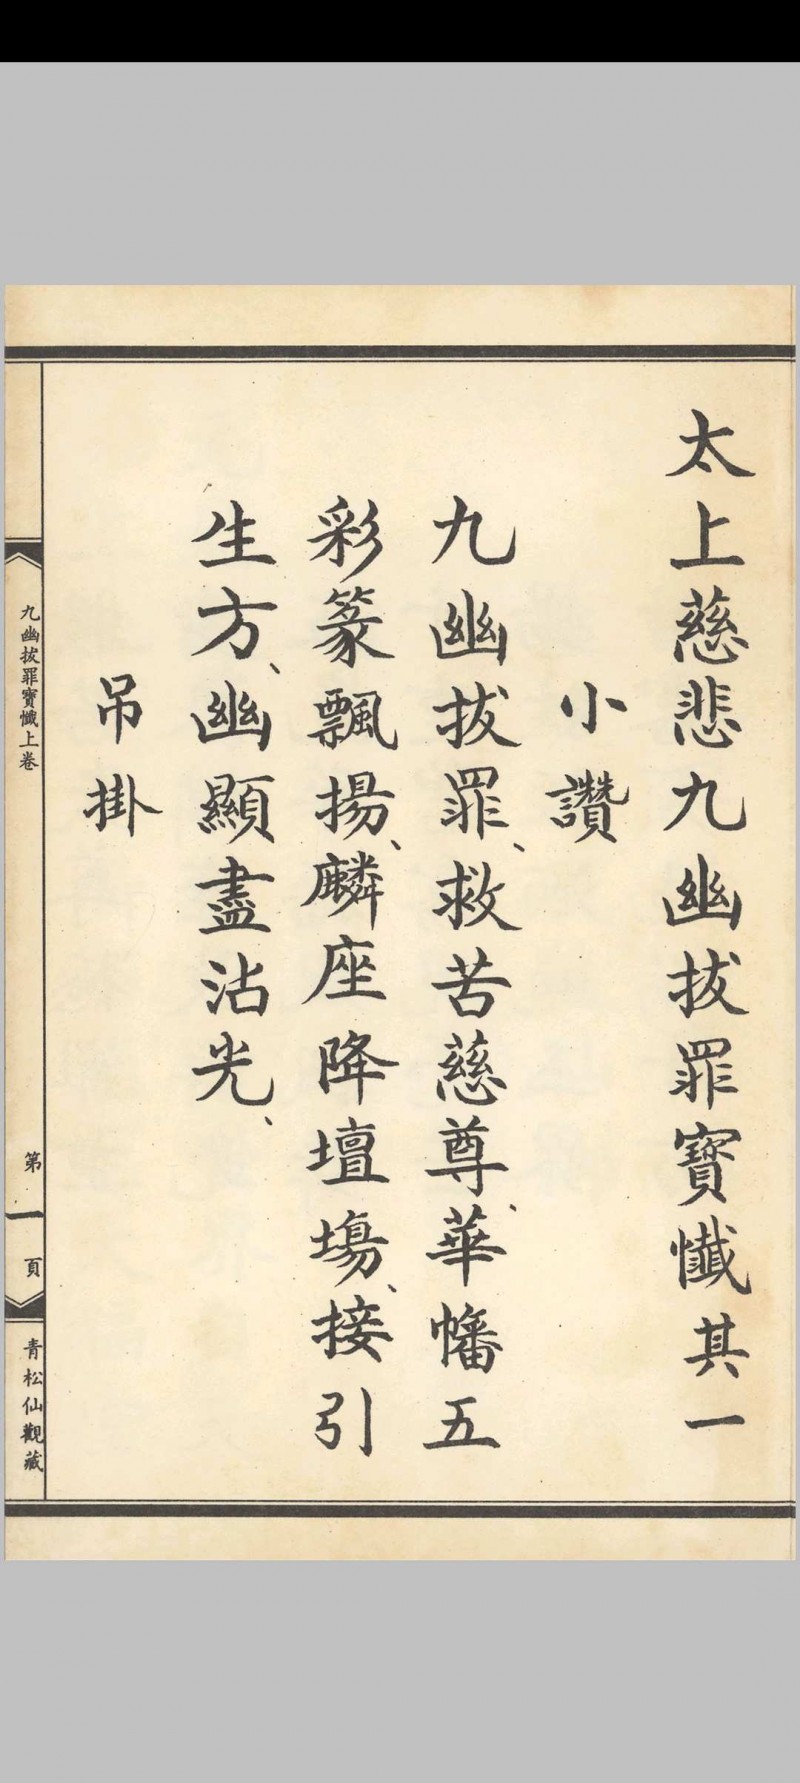 太上慈悲九幽拔罪寶懺其一
小讚
九幽拔罪、救苦慈尊、華幡五
彩篆飄揚、麟座降壇場、接引
生方、幽顯盡沾光、
吊掛
九幽拔罪寶懺上卷
第一頁
青松仙觀藏